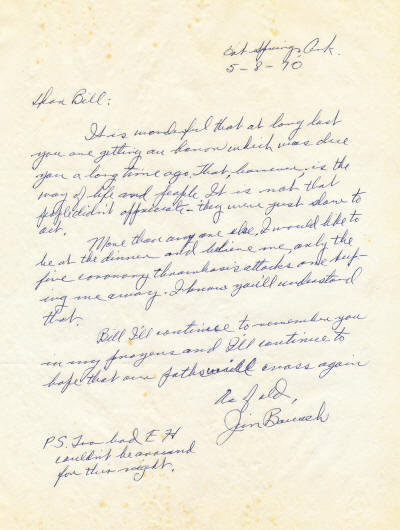 Hot Springs Ark.
5-8-70
Dear Bill:
It is wonderful that at long last
you are getting an honor which was due
you a long time ago. That, however, is the
way of life and people. It is not that
people didn't appreciate - they were just slow to
act.
More than any one else, I would like to
be at the dinner and believe me, only the
five coronary thrombosis attacks are keep-
ing me away. I know you'll understand
that.
Bill I'll continue to remember you
in my prayers and I'll continue to
hope that our paths will cross again
As of old,
Jim
P.S. Too bad E H
couldn't be around
for this night.